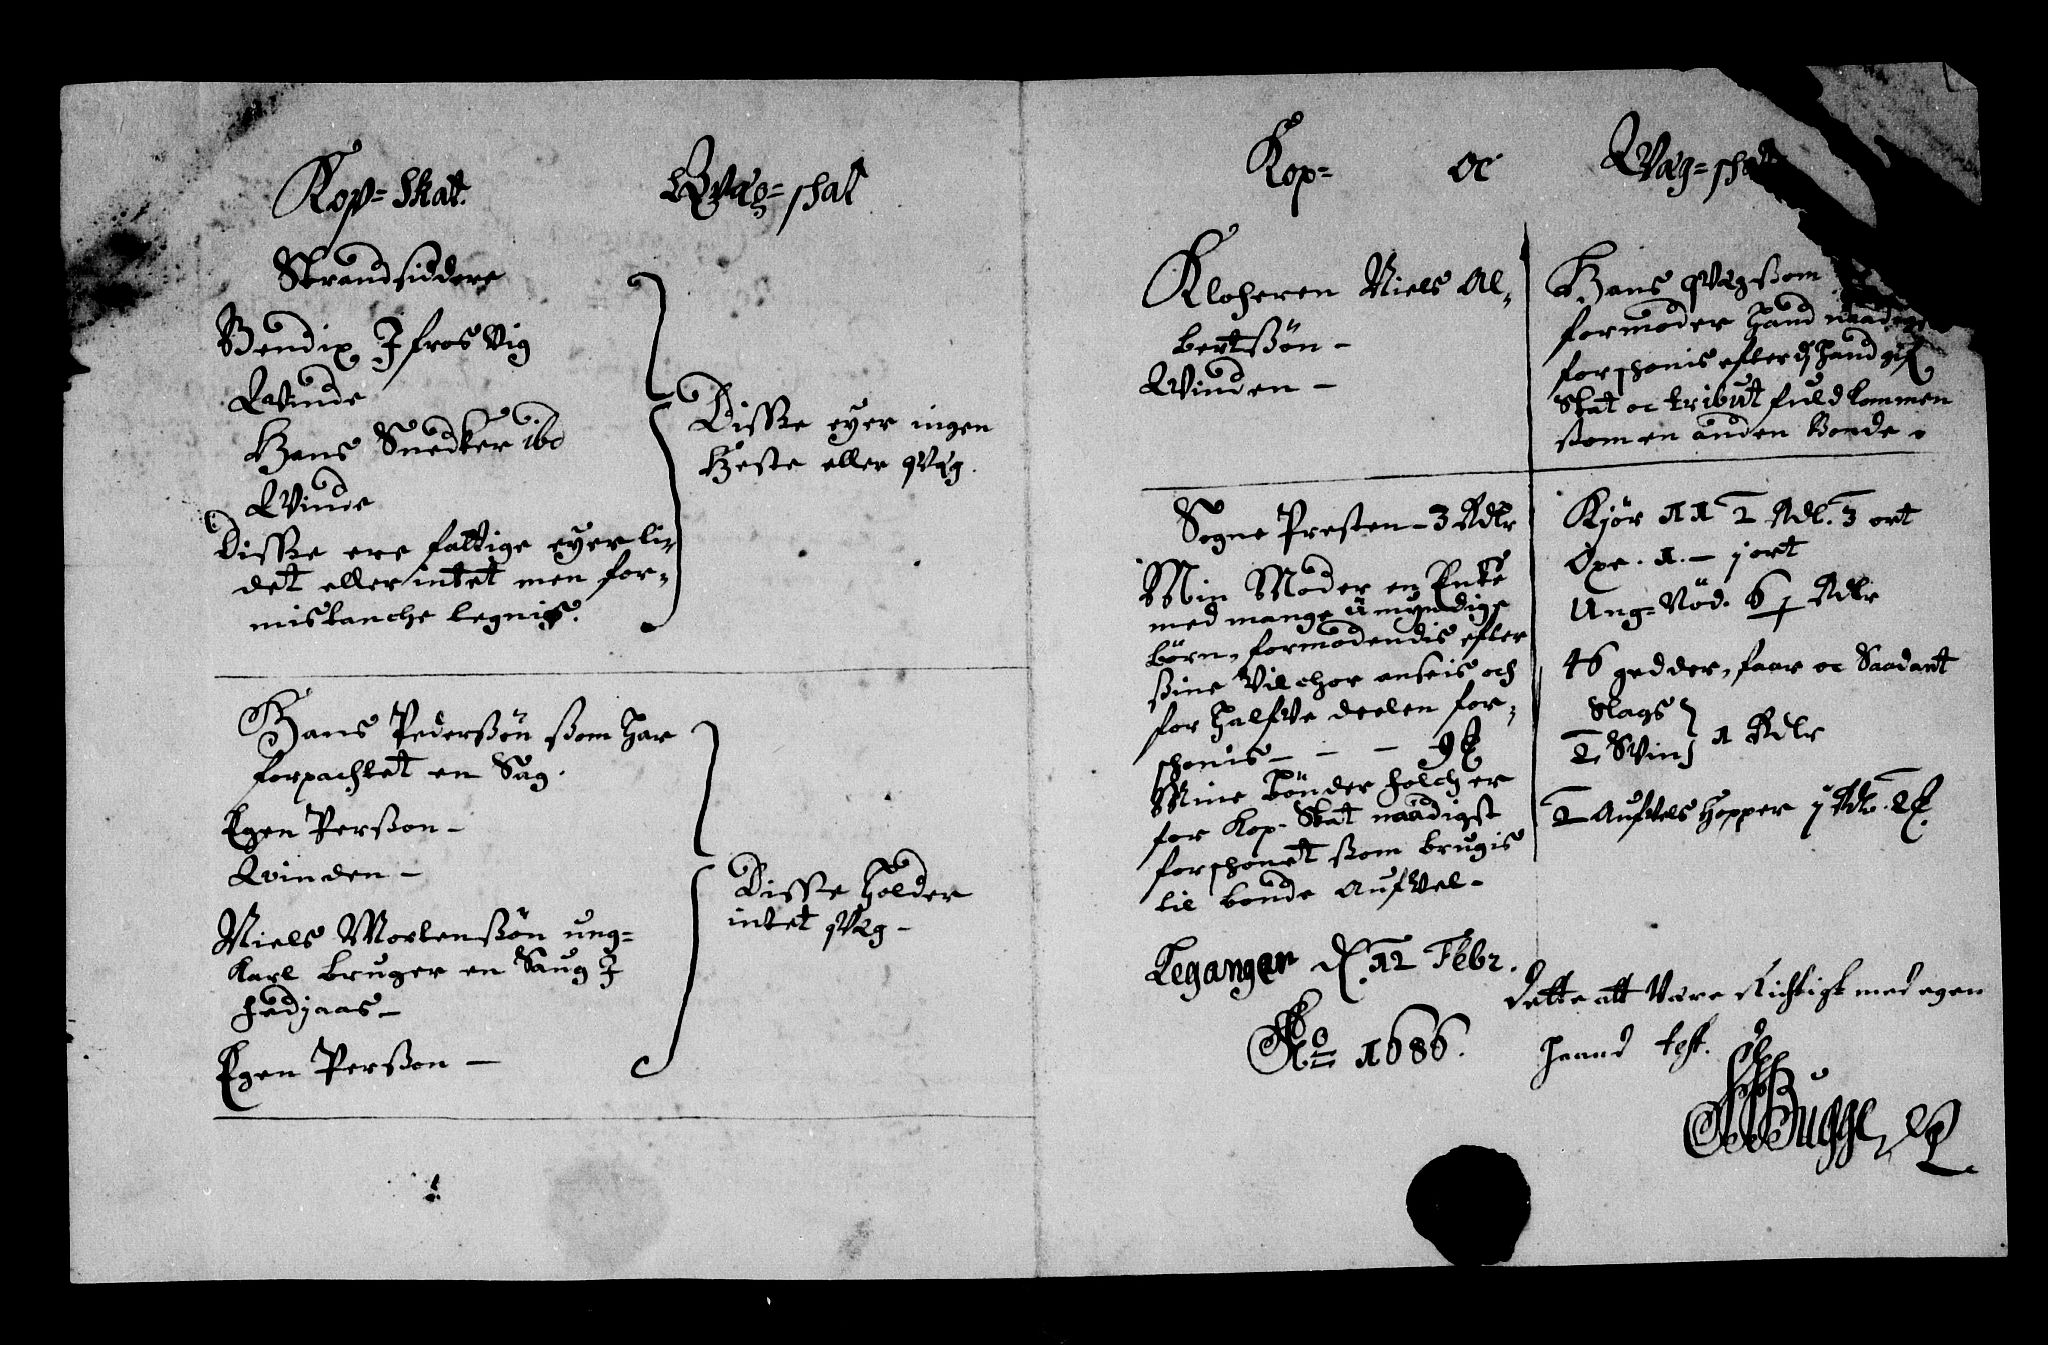 Kop= Skat.
Qvæg= skat
Strandsiddere
Bendix J frosvig
Qvinde
Hans Snedker ibd
Qvinde
Disse ere fattige eyer li=
det eller intet men for=
mislanche legnis.
Disse eyer ingen
Heste eller qvæg.
Hans Pederssøn ssom har
forpachtet en Sag.
Egen Persson –
Qvinden –
Niels Mortenssøn ung=
Karl bruger en Saug J
fedjaas –
Egen Persson –
Disse holder
intet qvæg –
Kop= oc Qvæg= skat
Klocheren Niels Al=
bertssøn –
Qvinden –
Hans qvæg ssom
formoder hand naadigst
forschonis efter dj hand gif
Skat oc tribut fuldkommen
ssom en anden Bonde.
Sogne Presten – 3 Rdlr
Min Moder en Enke
med mange umyndige
børn, formodendis efter
ssine vilchor anseis och
for halfve deelen for=
schonis – – –
Mine bønder folch er
for Kop-Skat naadigst
forschonet ssom brugis
til bonde aufvel –
Kjør 11 2 Rdl. 3 ort
Oxe. 1. – j ort
Ung=Nød. 6 j Rdlr
46 gedder, faar oc Saadant
Slags
2. Svin } 1 Rdlr
2 Aufvels Hopper j Rdl. 2
Leganger d. 12 Febr.
Ao 1686.
Dette att være Richtigt med egen
haand test.
Bugge